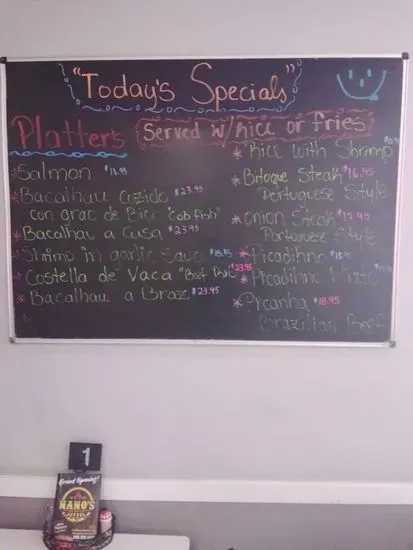 "Today's Specials"
Platter's Served w/rice or fries
*Salmon
*Bacalhau Cozido $23.95
con grao de Bico "cob fish"
*Bacalhau a Casa $23.95
*Shrimp in garlic Sauce $18.95
*Costella de Vaca "Beef Ribs" $23.95
*Bacalhau a Braz $23.95
*Rice with Shrimp
*Bitoque Steak $16.95
Portuguese Style
*onion Steak $19.95
Portuguese Style
*Picadihno
*Picadihno Mixto
*Picanha $18.95
Brazilian Beef
1
Grand Opening!
NANO'S